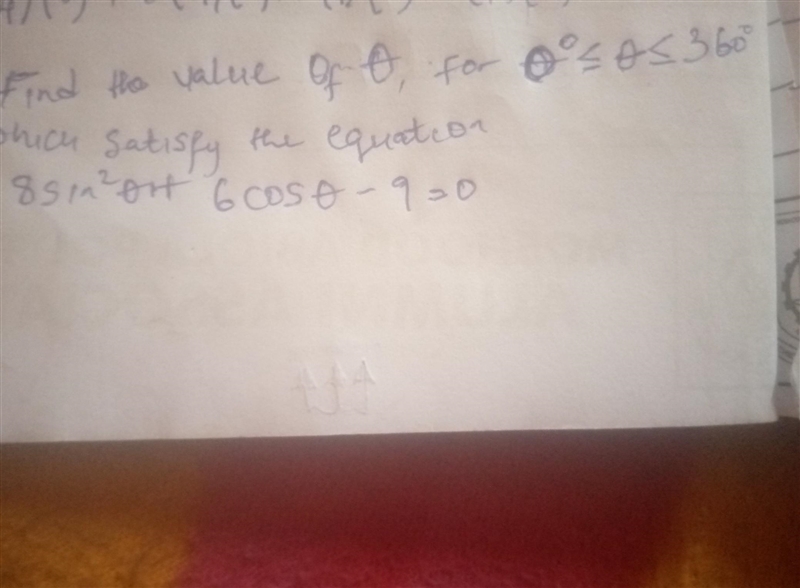 Find the value Of θ, for θ° ≤ θ ≤ 360°
which satisfy the equation
8 sin² θ + 6 cos θ - 9 = 0